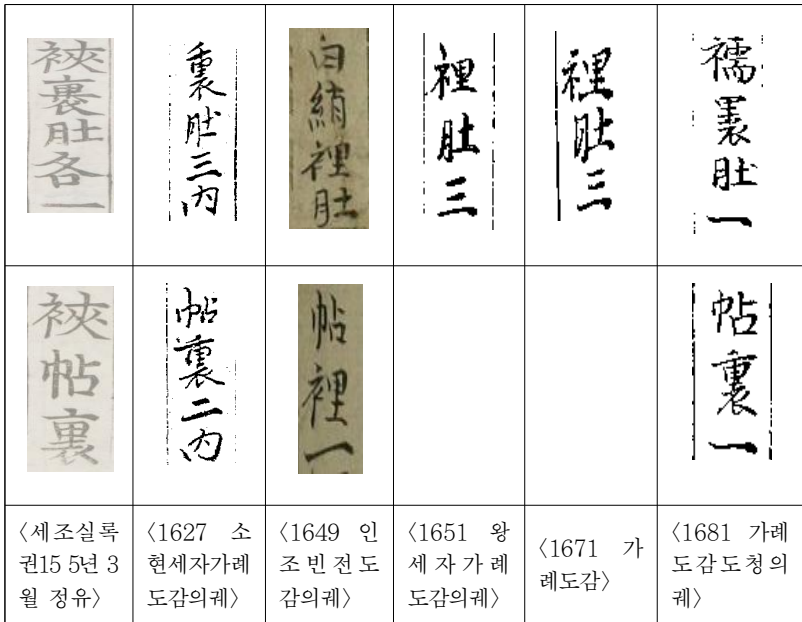 裌裹肚各一
裏肚三内
白綃裡肚
裡肚三
裡肚三
襦裹肚一
裌帖裏
帖裏二内
帖裡一
帖裏一
〈세조실록
권15 5년 3
월 정유〉
〈1627 소
현세자가례
도감의궤〉
〈1649 인
조빈전도
감의궤〉
〈1651 왕
세자가례
도감의궤〉
〈1671 가
례도감〉
〈1681 가례
도감도청의
궤〉